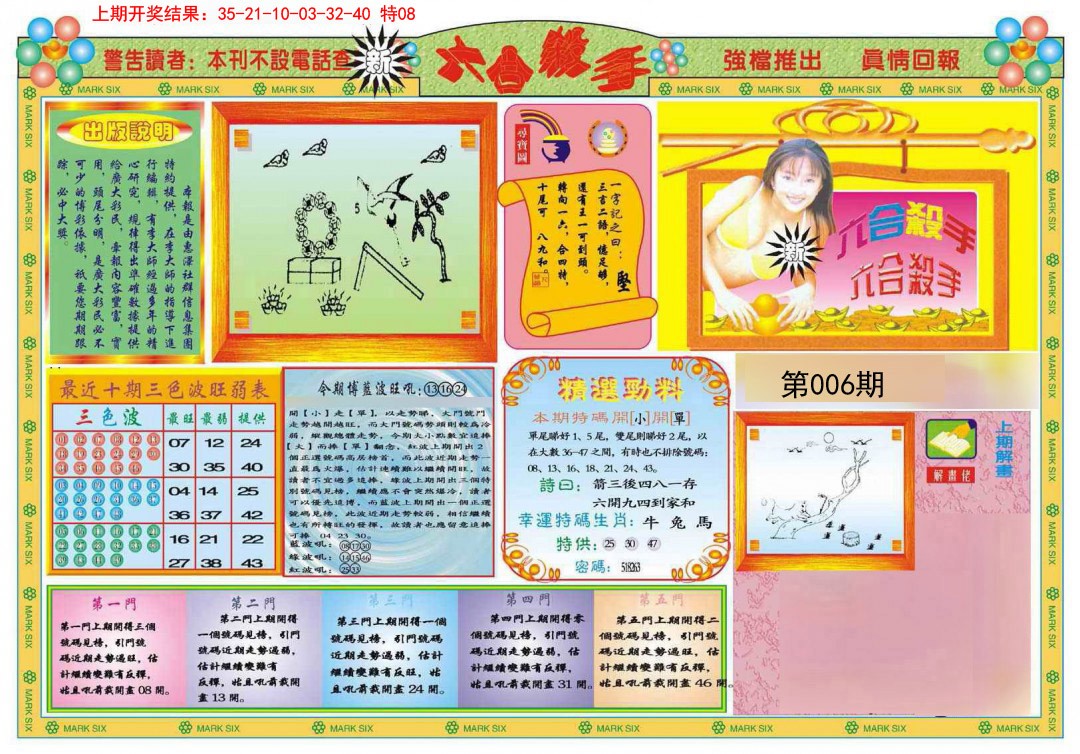 上期开奖结果：35-21-10-03-32-40 特08
警告讀者：本刊不設電話查
新
六合殺手
強檔推出 真情回報
MARK SIX
出版說明
本報是由惠澤社群信息集團
特約提供，在李大師的指導下進
行編輯，有李大師經過多年的精
心研究，規律得出準確數據提供
給廣大彩民，彙報內容豐富，實
用，頭尾分明，是廣大彩民必不
可少的博彩依據，祇要您期期跟
踪，必中大獎。
5
尋寶圖
一字記之曰：堅
三言二語，憶足够，
還有王一可刻頭。
轉向一六，合四特，
十尾可 八九和。
六合殺手
六合殺手
新
最近十期三色波旺弱表
三色波 最旺 最弱 提供
07 12 24
30 35 40
04 14 25
36 37 42
16 21 22
27 38 43
今期博藍波旺吼：⑬⑯㉔
開【小】走【單】，以走勢睇，大門號門
走勢越開越旺，而大門號碼勢頭則較為冷
弱，縱觀總體走勢，今期大小點數宜追捧
【大】而捧【單】翻念，紅波上期開出2
個正選號碼高居榜首，而此波近期走勢一
直最為火爆，估計連續難以繼續開旺，故
讀者不宜過多追捧，綠波上期開出三個特
別號碼見榜，繼續應不會突然爆冷，讀者
可以優先追博，而藍波上期開出一個正選
號碼見榜，此波近期走勢較弱，相信繼續
也有所轉旺的發揮，故讀者也應留意追捧
可捧 04 23 30。
藍波吼：
綠波吼：
紅波吼：
精選勁料
本期特碼開[小]開[單]
單尾睇好1、5尾，雙尾則睇好2尾，以
在大數36-47之間，有時也不排除號碼：
08、13、16、18、21、24、43。
詩曰：箭三後四八一存
六開九四到家和
幸運特碼生肖：牛 兔 馬
特供：㉕ ㉚ ㊼
密碼：518263
第006期
上期解畫
解畫佬
第一門
第一門上期開得三個
號碼見榜，引門號
碼近期走勢過旺，估
計繼續變難有反彈，
姑且吼前裁開盍08開。
第二門
第二門上期開得
一個號碼見榜，引門
號碼近期走勢過弱，
估計繼續變難有
反彈，姑且吼前裁開
盍13開。
第三門
第三門上期開得一個
號碼見榜，引門號碼
近期走勢過弱，估計
繼續變難有反旺，姑
且吼前裁開盍24開。
第四門
第四門上期開得零
個號碼見榜，引門號
碼近期走勢過弱，估
計繼續變難有反彈，
姑且吼前裁開盍31開。
第五門
第五門上期開得二
個號碼見榜，引門號
碼近期走勢過旺，估
計繼續變難有反彈，
姑且吼前裁開盍46開。